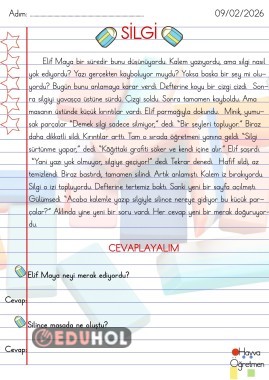 Adım: 09/02/2026
SİLGİ
Elif Maya bir süredir bunu düşünüyordu. Kalem yazıyordu, ama silgi nasıl
yok ediyordu? Yazı gerçekten kayboluyor muydu? Yoksa başka bir şey mi olu-
yordu? Bugün bunu anlamaya karar verdi. Defterine koyu bir çizgi çizdi. Son-
ra silgiyi yavaşça üstüne sürdü. Çizgi soldu. Sonra tamamen kayboldu. Ama
masanın üstünde küçük kırıntılar vardı. Elif parmağıyla dokundu. Minik, yumu-
şak parçalar. "Demek silgi sadece silmiyor," dedi. "Bir şeyleri topluyor." Biraz
daha dikkatli sildi. Kırıntılar arttı. Tam o sırada öğretmeni yanına geldi. "Silgi
sürtünme yapar," dedi. "Kâğıttaki grafiti söker ve kendi içine alır." Elif şaşırdı.
"Yani yazı yok olmuyor, silgiye geçiyor!" dedi. Tekrar denedi. Hafif sildi, az
temizlendi. Biraz bastırdı, tamamen silindi. Artık anlamıştı. Kalem iz bırakıyordu.
Silgi o izi topluyordu. Defterine tertemiz baktı. Sanki yeni bir sayfa açılmıştı.
Gülümsedi. "Acaba kalemle yazıp silgiyle silince nereye gidiyor bu küçük par-
çalar?" Aklında yine yeni bir soru vardı. Her cevap yeni bir merak doğuruyor-
du.
CEVAPLAYALIM
Elif Maya neyi merak ediyordu?
Cevap:
Silince masada ne oluştu?
Cevap:
EDUHOL
Hayva
Öğretmen